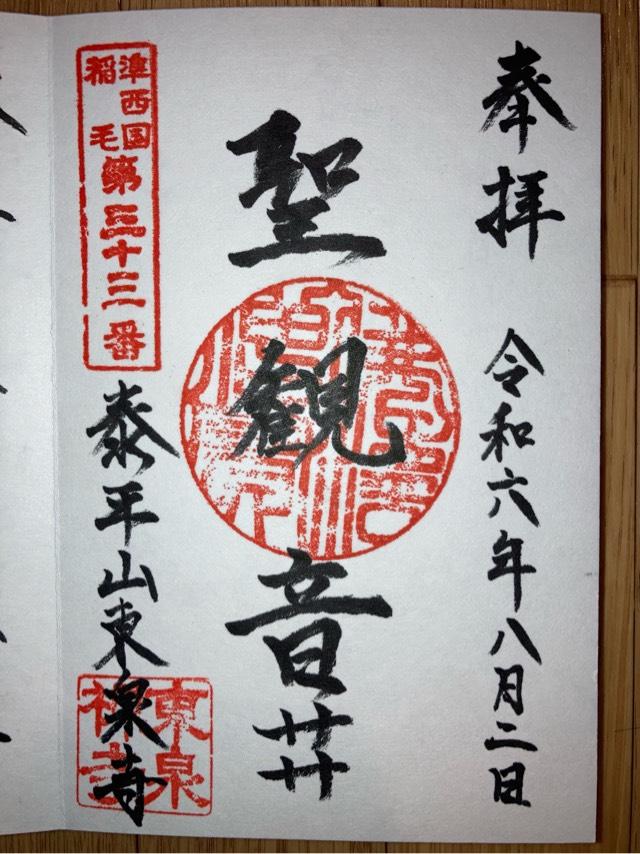 奉拝
令和六年八月二日
聖観音𦬇
準西国
稲毛
第三十三番
泰平山東泉寺
東泉
禅寺